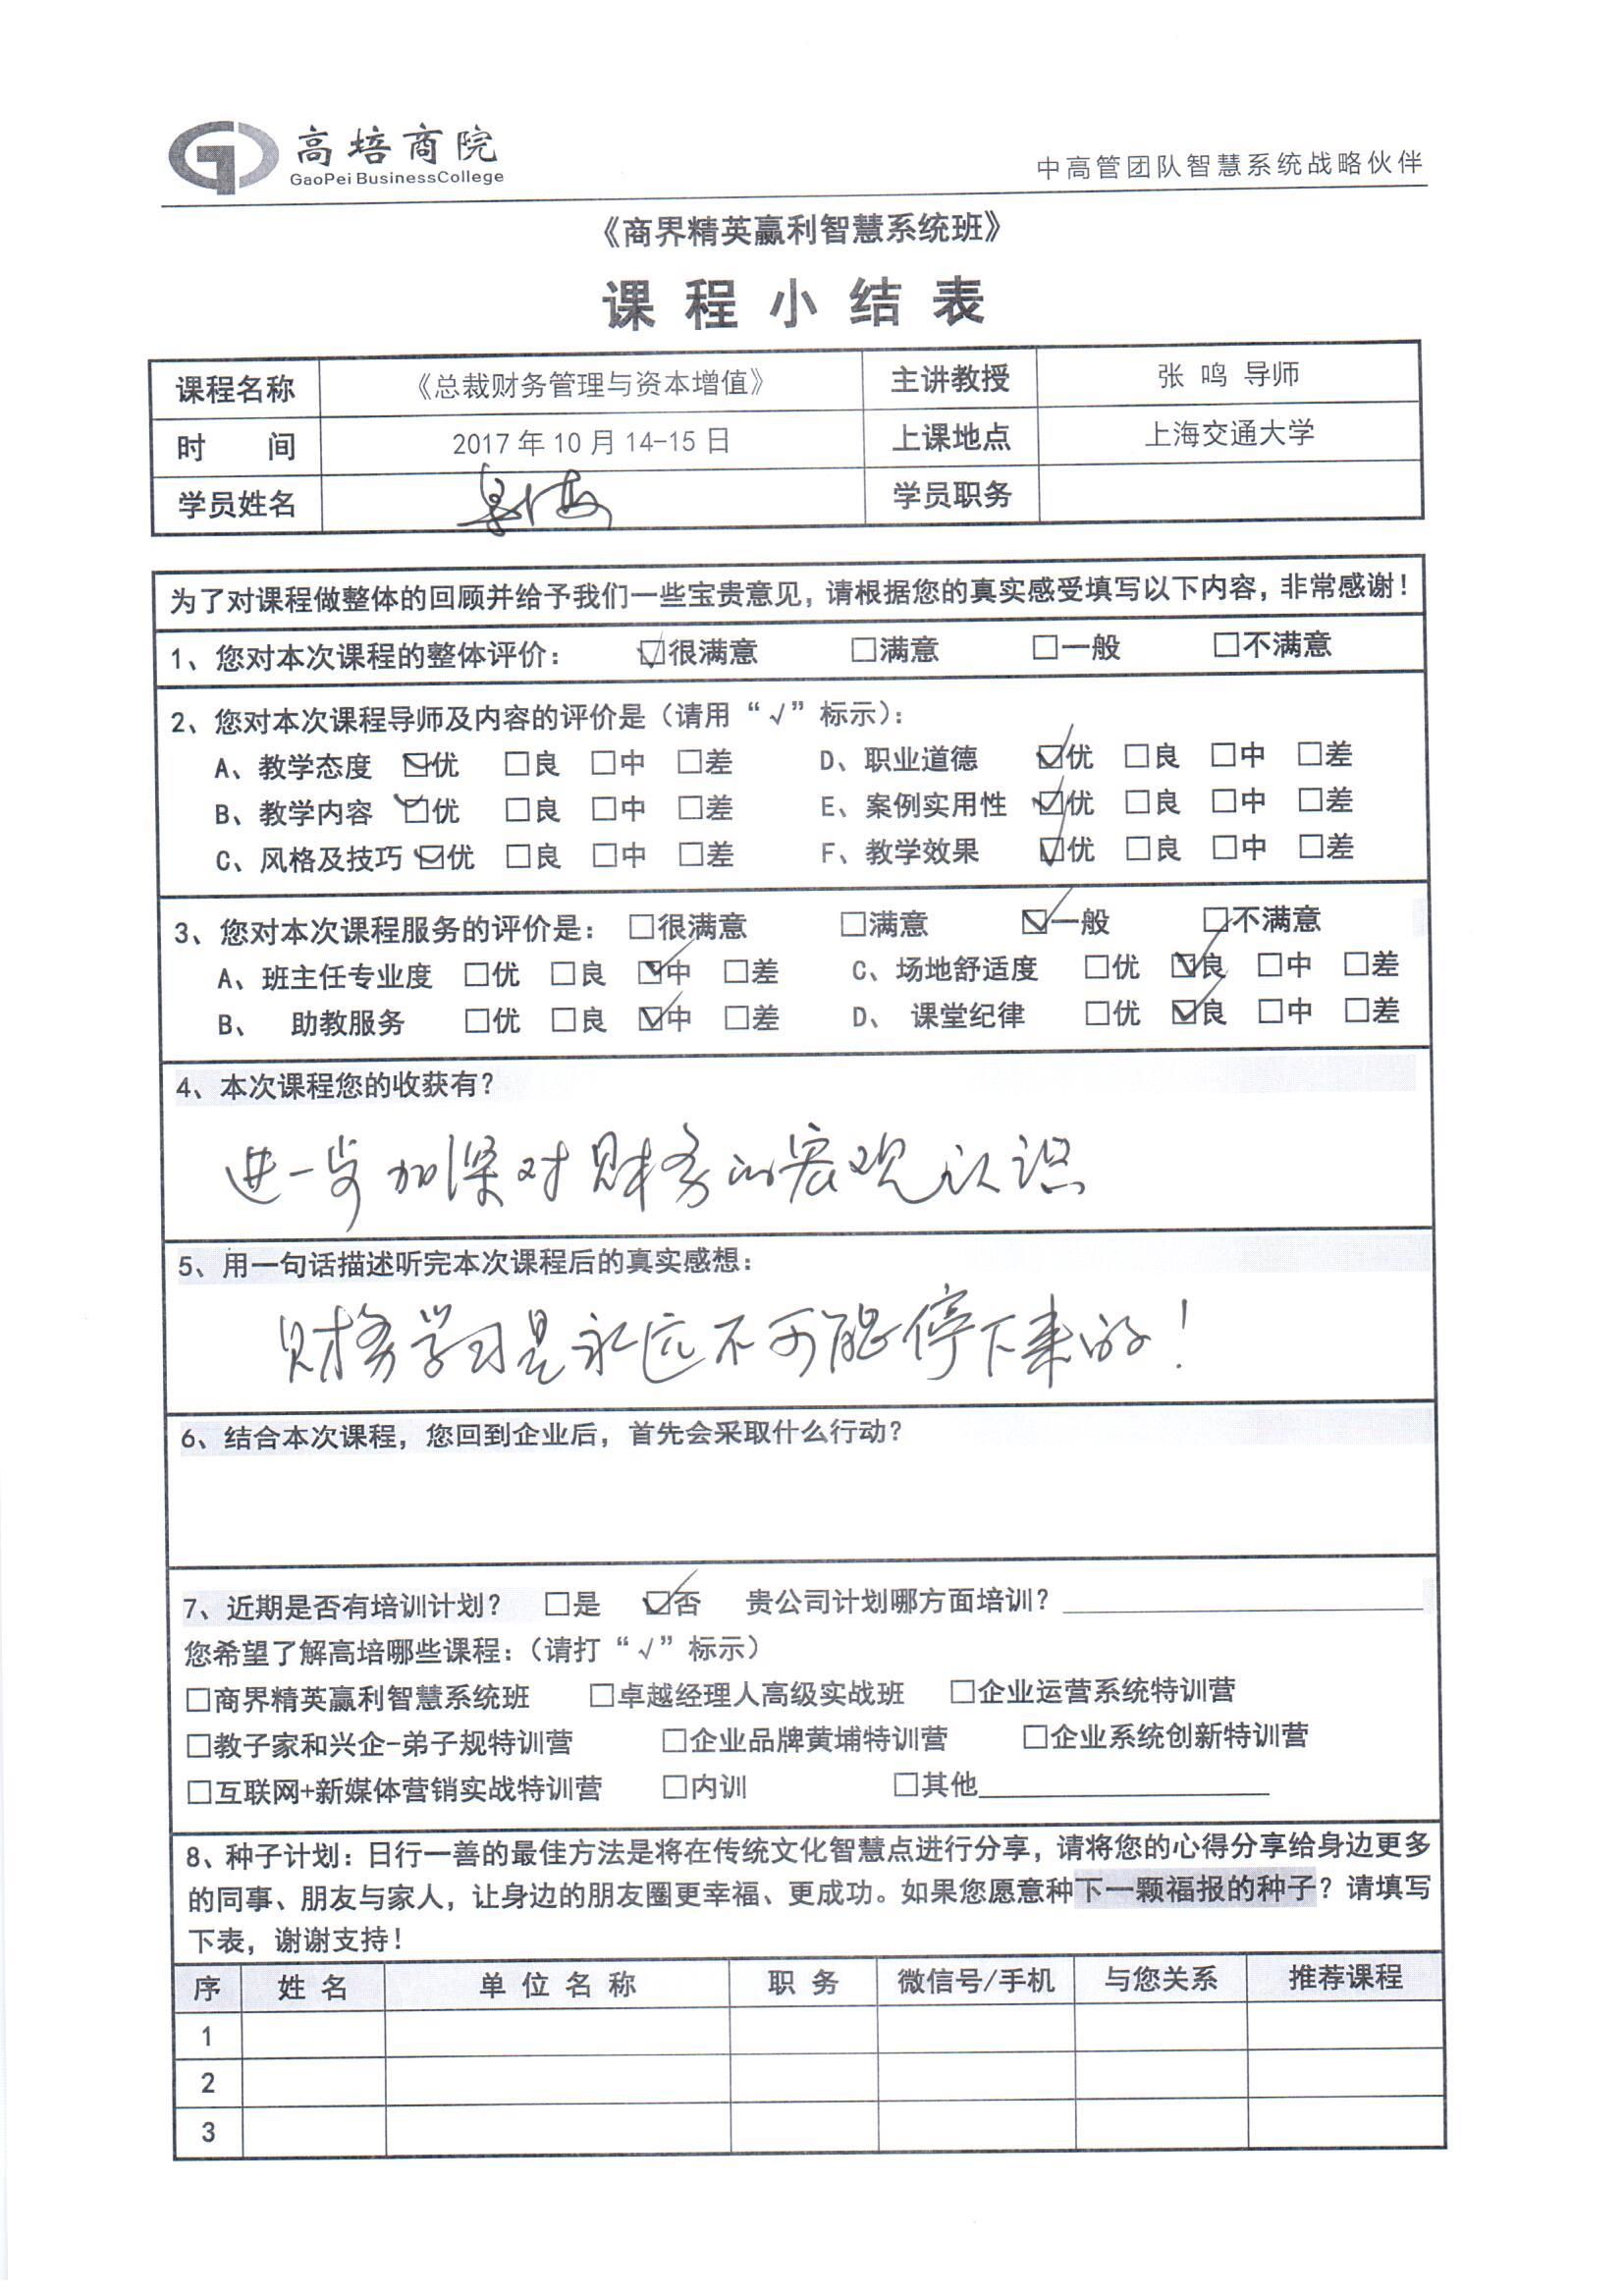 高培商院
GaoPei BusinessCollege
中高管团队智慧系统战略伙伴
《商界精英赢利智慧系统班》
课程小结表
课程名称 《总裁财务管理与资本增值》 主讲教授 张 鸣 导师
时 间 2017 年 10 月 14-15 日 上课地点 上海交通大学
学员姓名 学员职务
为了对课程做整体的回顾并给予我们一些宝贵意见，请根据您的真实感受填写以下内容，非常感谢！
1、您对本次课程的整体评价： ☑很满意 □满意 □一般 □不满意
2、您对本次课程导师及内容的评价是（请用“√”标示）：
A、教学态度 ☑优 □良 □中 □差 D、职业道德 ☑优 □良 □中 □差
B、教学内容 ☑优 □良 □中 □差 E、案例实用性 ☑优 □良 □中 □差
C、风格及技巧 ☑优 □良 □中 □差 F、教学效果 ☑优 □良 □中 □差
3、您对本次课程服务的评价是： □很满意 □满意 ☑一般 □不满意
A、班主任专业度 □优 □良 ☑中 □差 C、场地舒适度 □优 ☑良 □中 □差
B、 助教服务 □优 □良 ☑中 □差 D、 课堂纪律 □优 ☑良 □中 □差
4、本次课程您的收获有？
进一步加深对财务的宏观认识
5、用一句话描述听完本次课程后的真实感想：
财务学习是永远不可能停下来的！
6、结合本次课程，您回到企业后，首先会采取什么行动？
7、近期是否有培训计划？ □是 ☑否 贵公司计划哪方面培训？
您希望了解高培哪些课程：（请打“√”标示）
□商界精英赢利智慧系统班 □卓越经理人高级实战班 □企业运营系统特训营
□教子家和兴企-弟子规特训营 □企业品牌黄埔特训营 □企业系统创新特训营
□互联网+新媒体营销实战特训营 □内训 □其他
8、种子计划：日行一善的最佳方法是将在传统文化智慧点进行分享，请将您的心得分享给身边更多
的同事、朋友与家人，让身边的朋友圈更幸福、更成功。如果您愿意种下一颗福报的种子？请填写
下表，谢谢支持！
序 姓 名 单 位 名 称 职 务 微信号/手机 与您关系 推荐课程
1
2
3